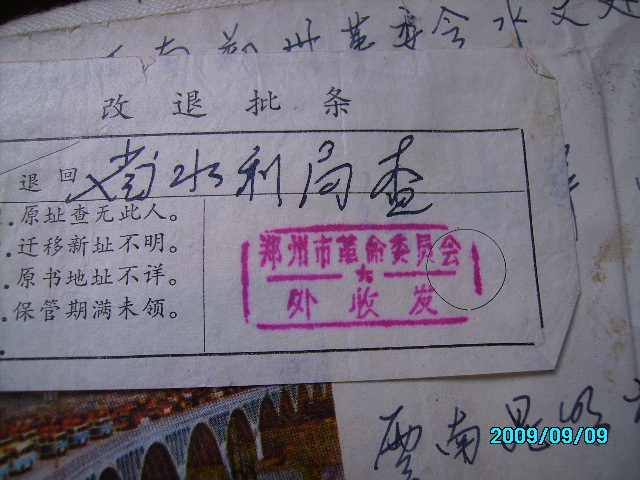 河南郑州革委会水文处
改退批条
退回 省水利局查
1.原址查无此人。
2.迁移新址不明。
3.原书地址不详。
4.保管期满未领。
郑州市革命委员会
外收发
云南昆明
2009/09/09